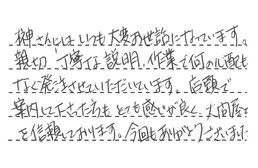 榊さんにはいつも大変お世話になっています。
親切、丁寧な説明、作業で何の心配も
なく発注させていただいています。店頭で
案内して下さった方も とても感じが良く、大向屋さん
を信頼しております。今回もありがとうございました